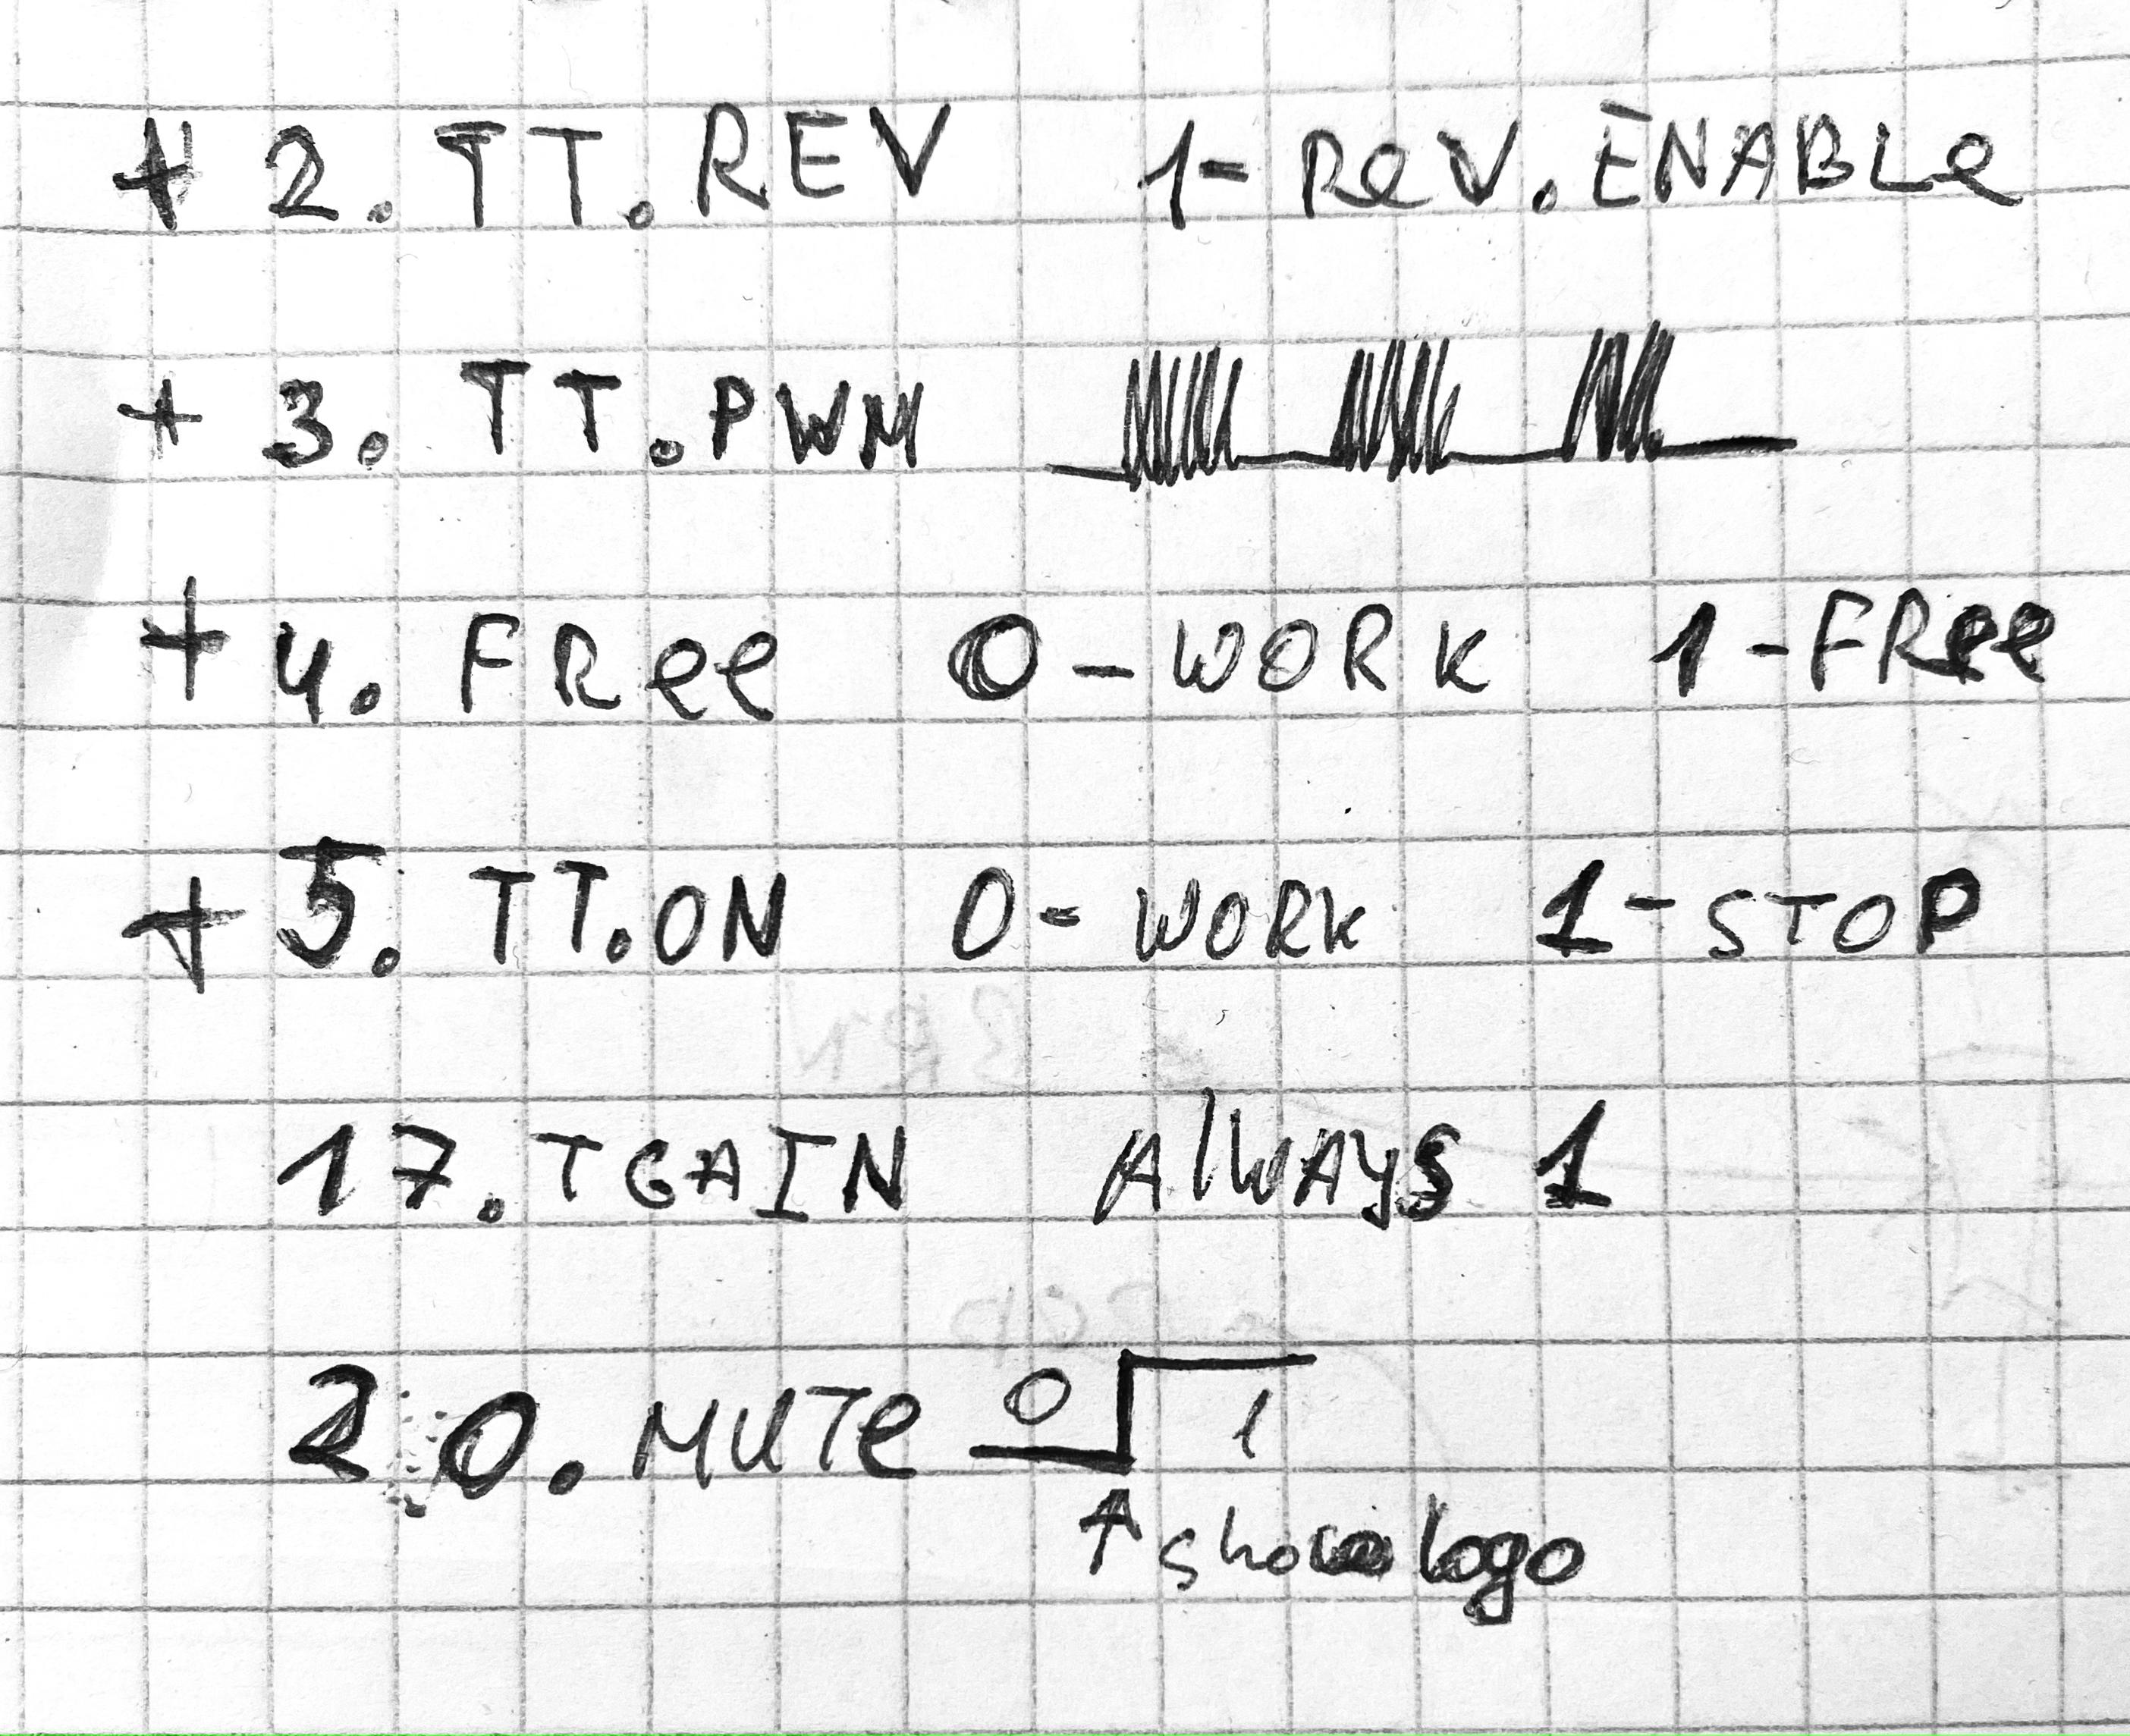 + 2. TT.REV 1- ReV.ENABLe
+ 3. TT.PWM
+ 4. FRee 0 - WORK 1 - FRee
+ 5. TT.ON 0 - WORK 1 - STOP
17. TGAIN AlWAYS 1
20. MUTe 0 1
show logo